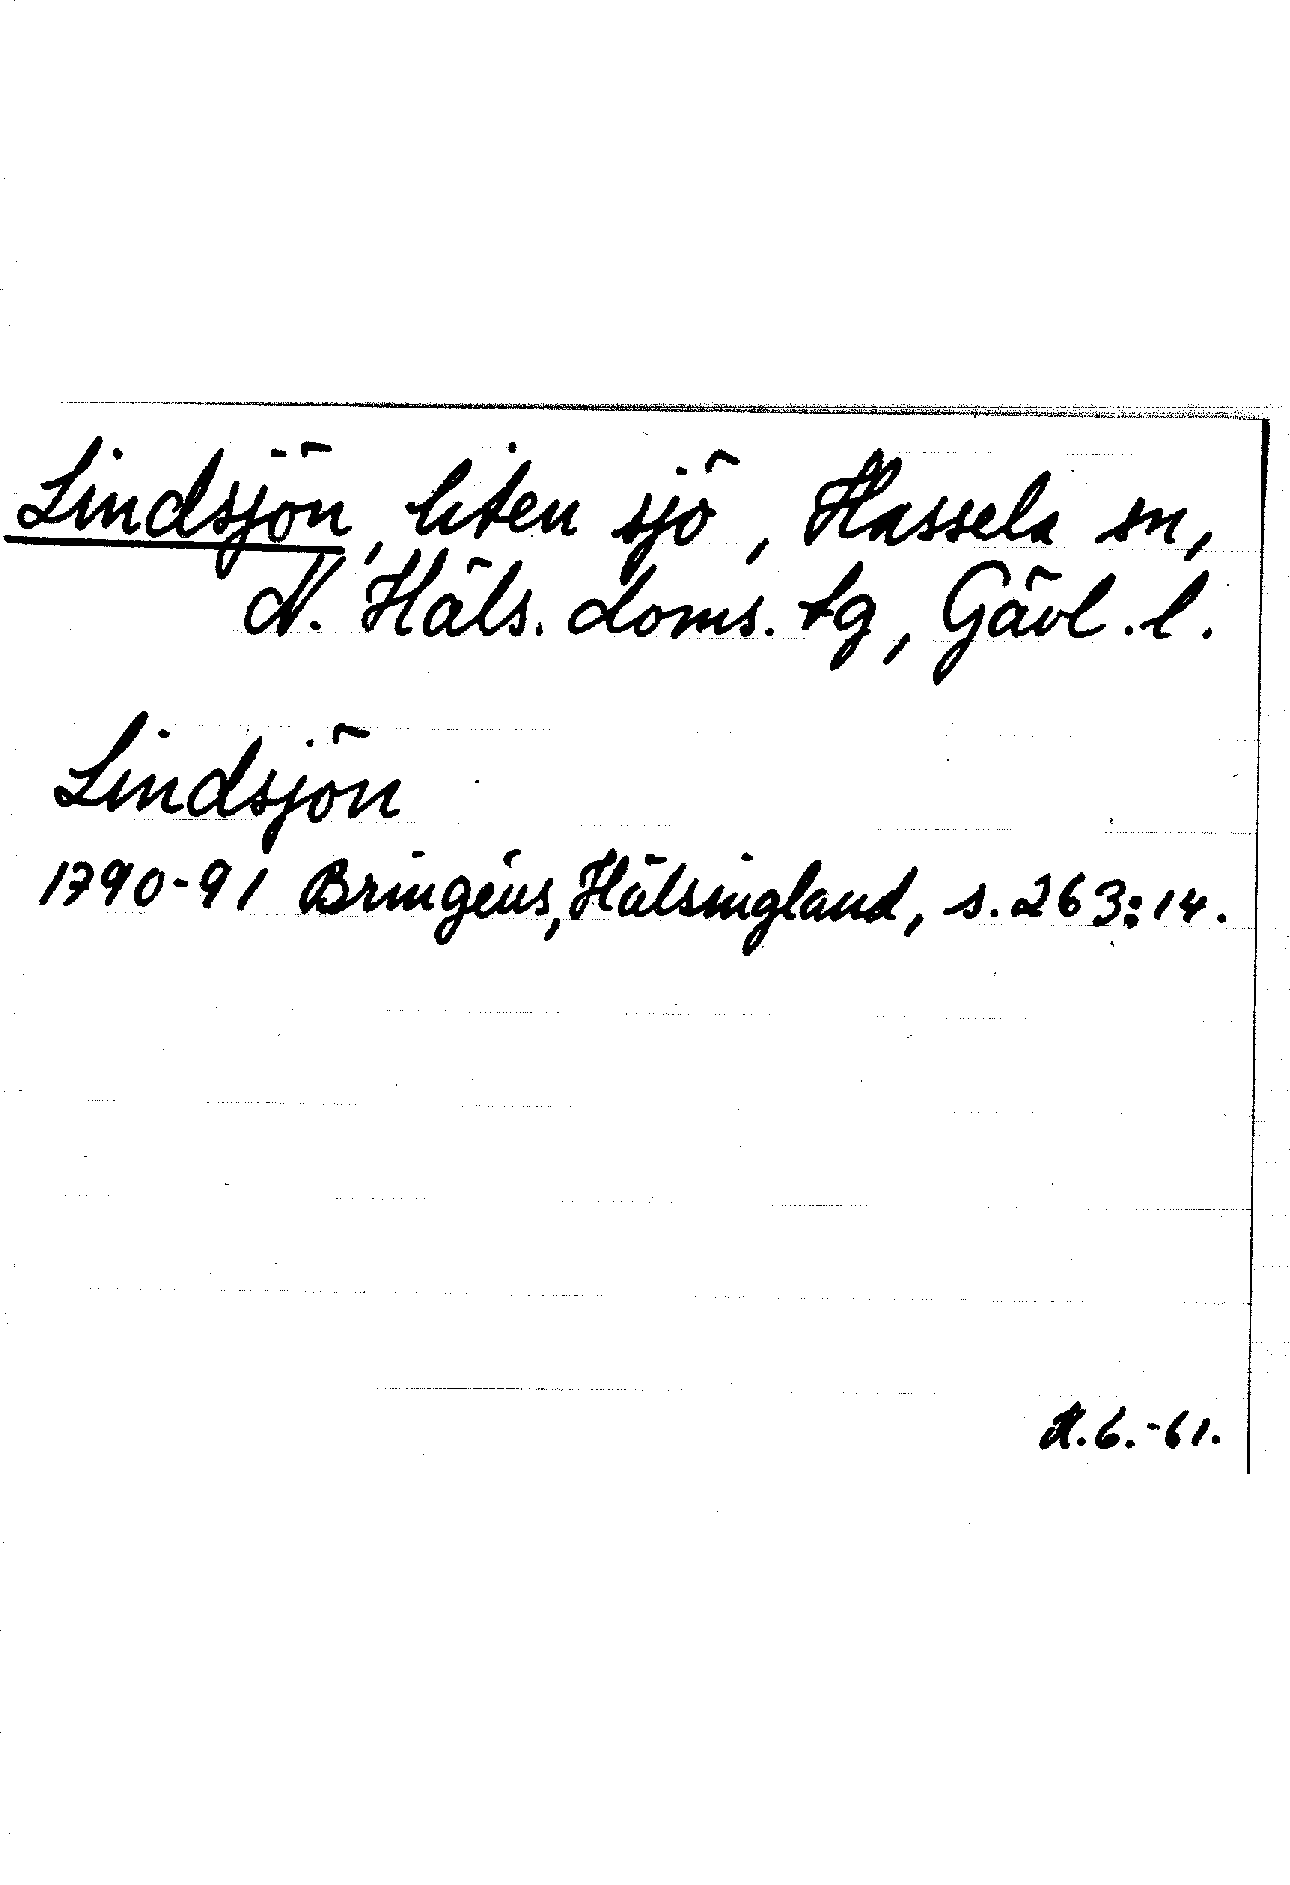 Lindsjön, liten sjö, Hassela sn,
N. Häls. doms. tg, Gävl. l.
Lindsjön
1790-91 Bringéus, Hälsingland, s. 263:14.
H.6.-61.